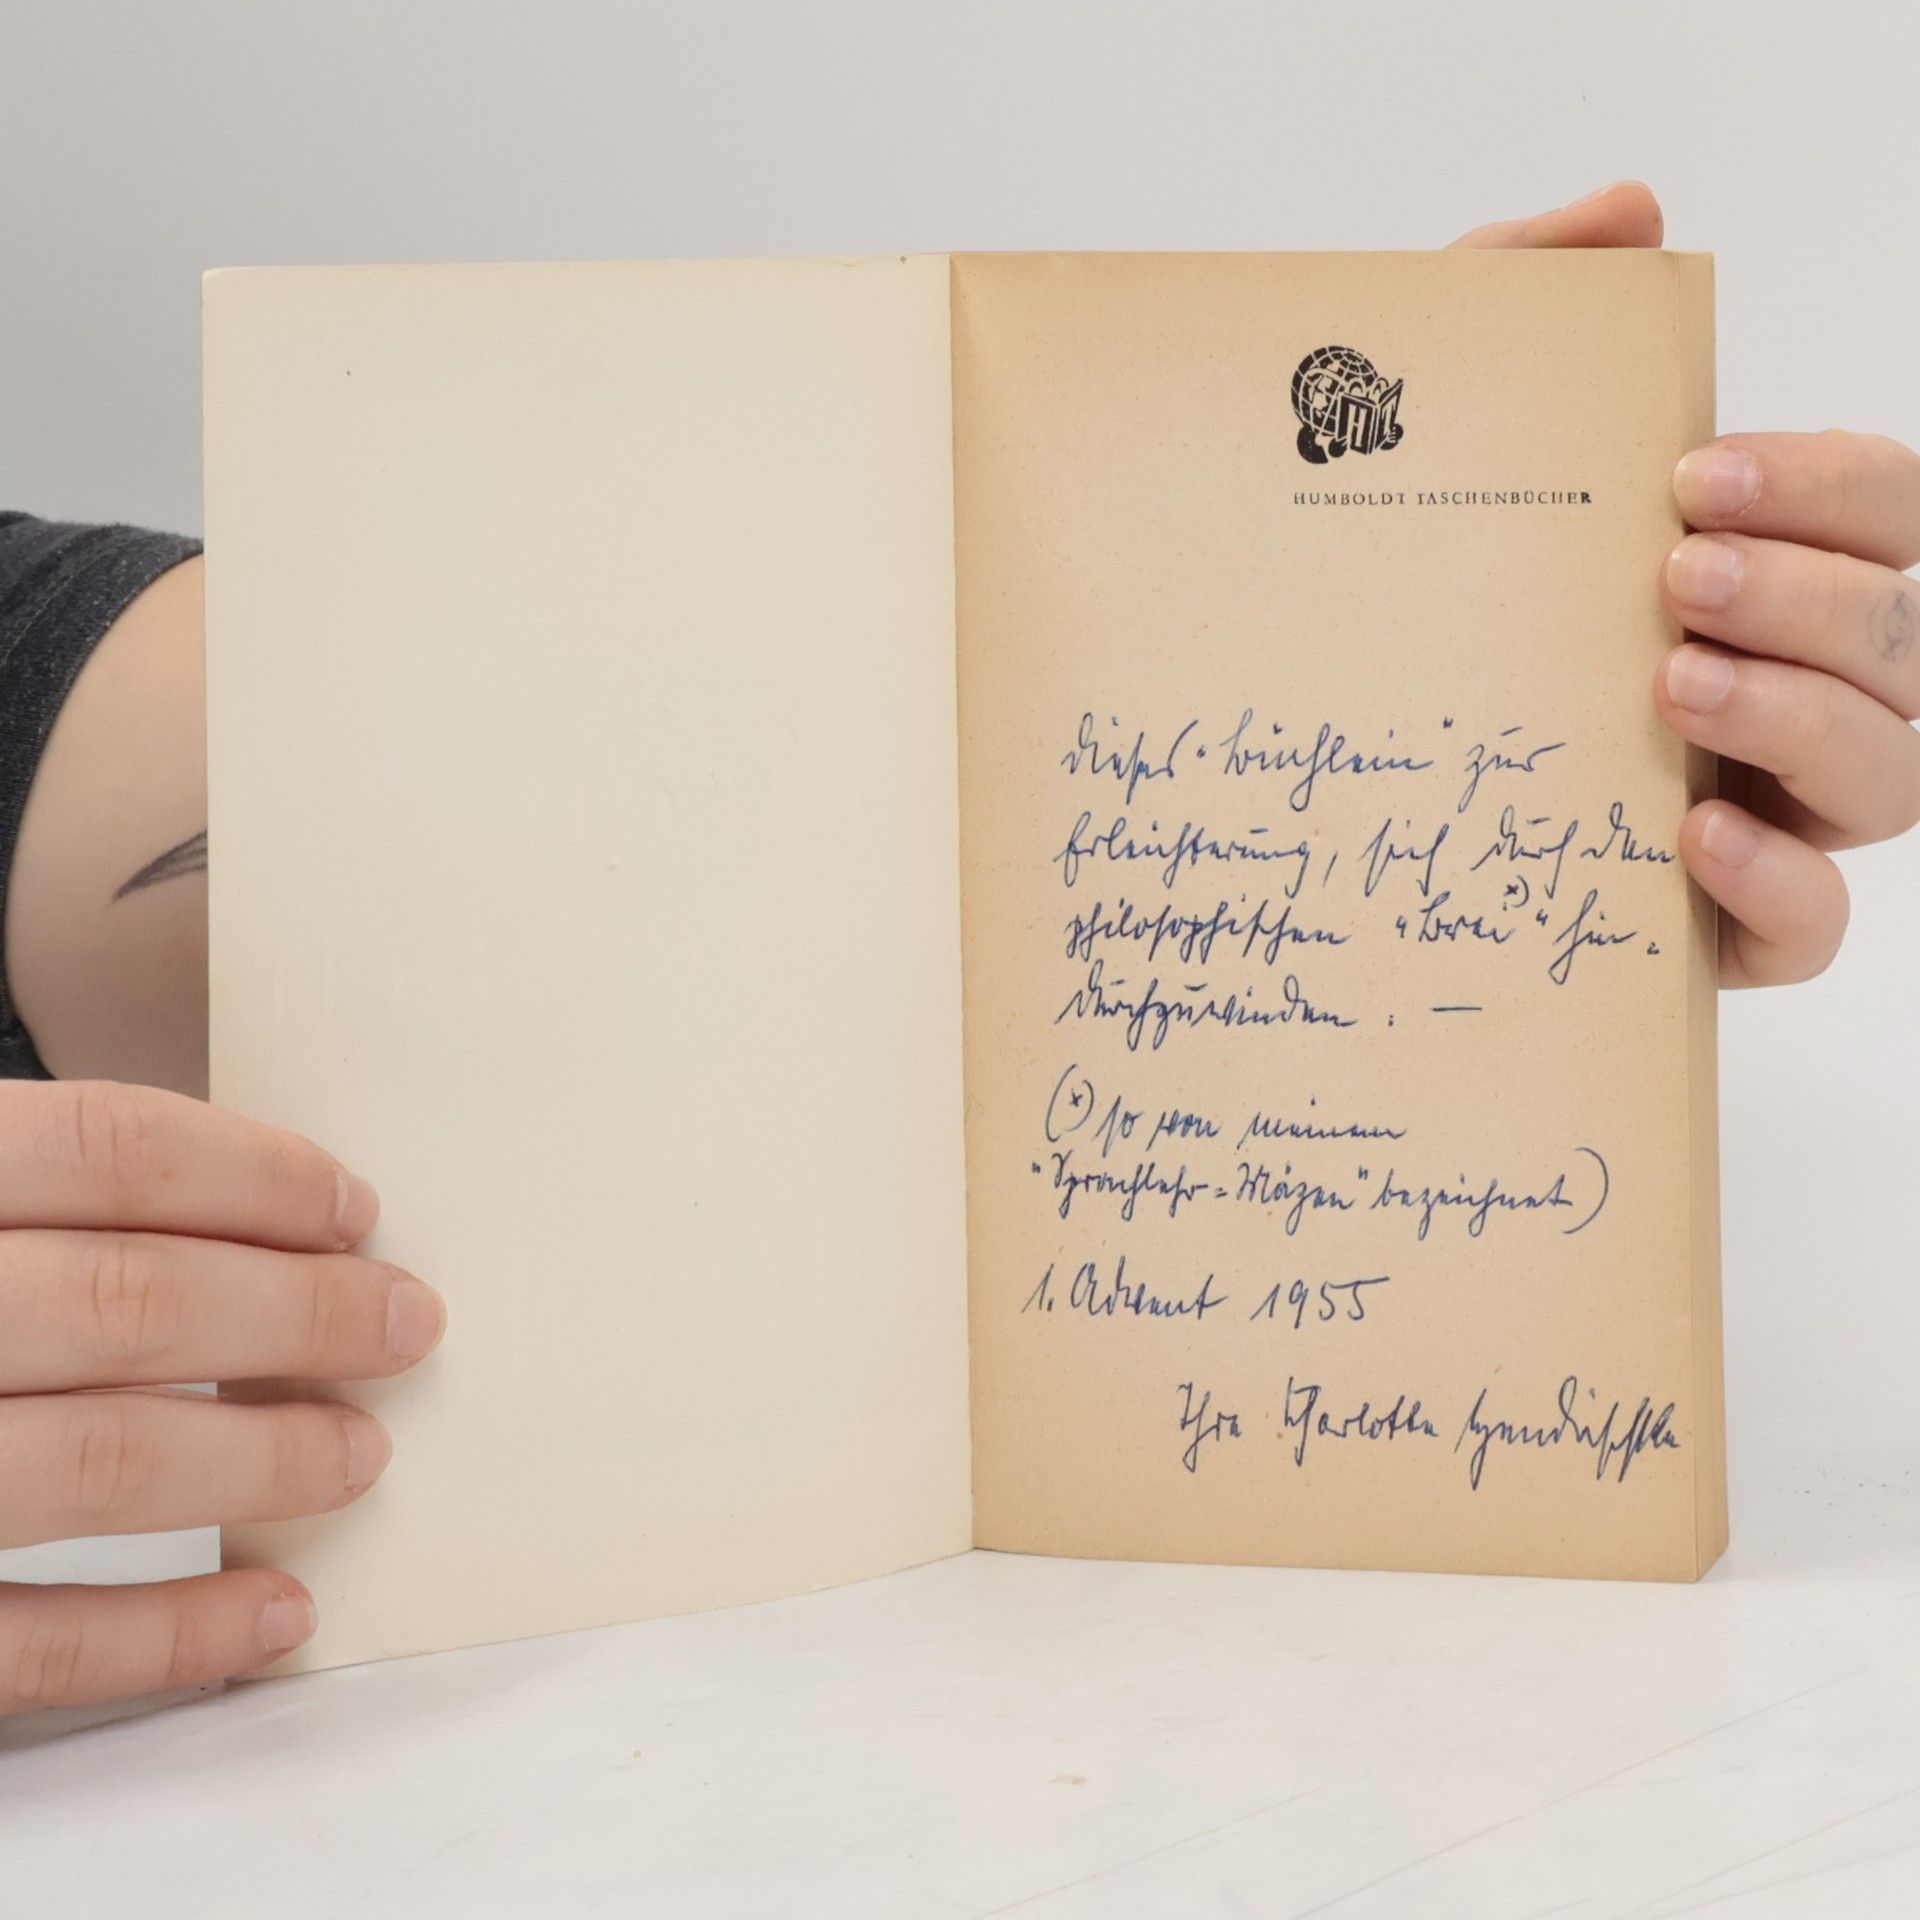 HT
HUMBOLDT TASCHENBÜCHER
Dieses "Büchlein" zur
Erleichterung, sich durch den
philosophischen "Brei x)" hin=
durchzuwinden. —
(x) so von meinem
"Sprachlehr=Mäzen" bezeichnet)
1. Advent 1955
Ihre Charlotte